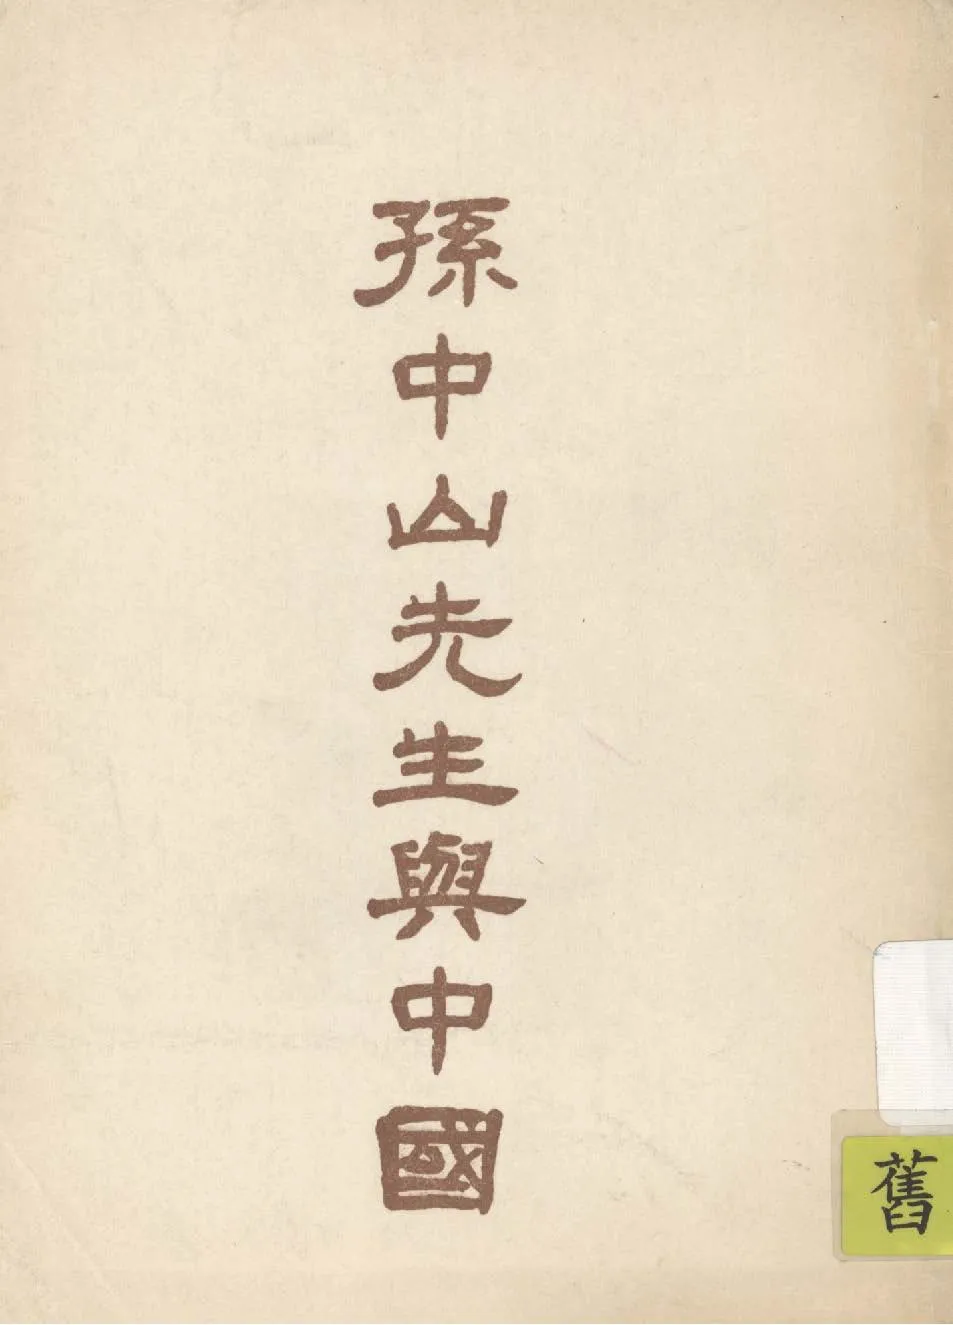 孫中山先生與中國
舊